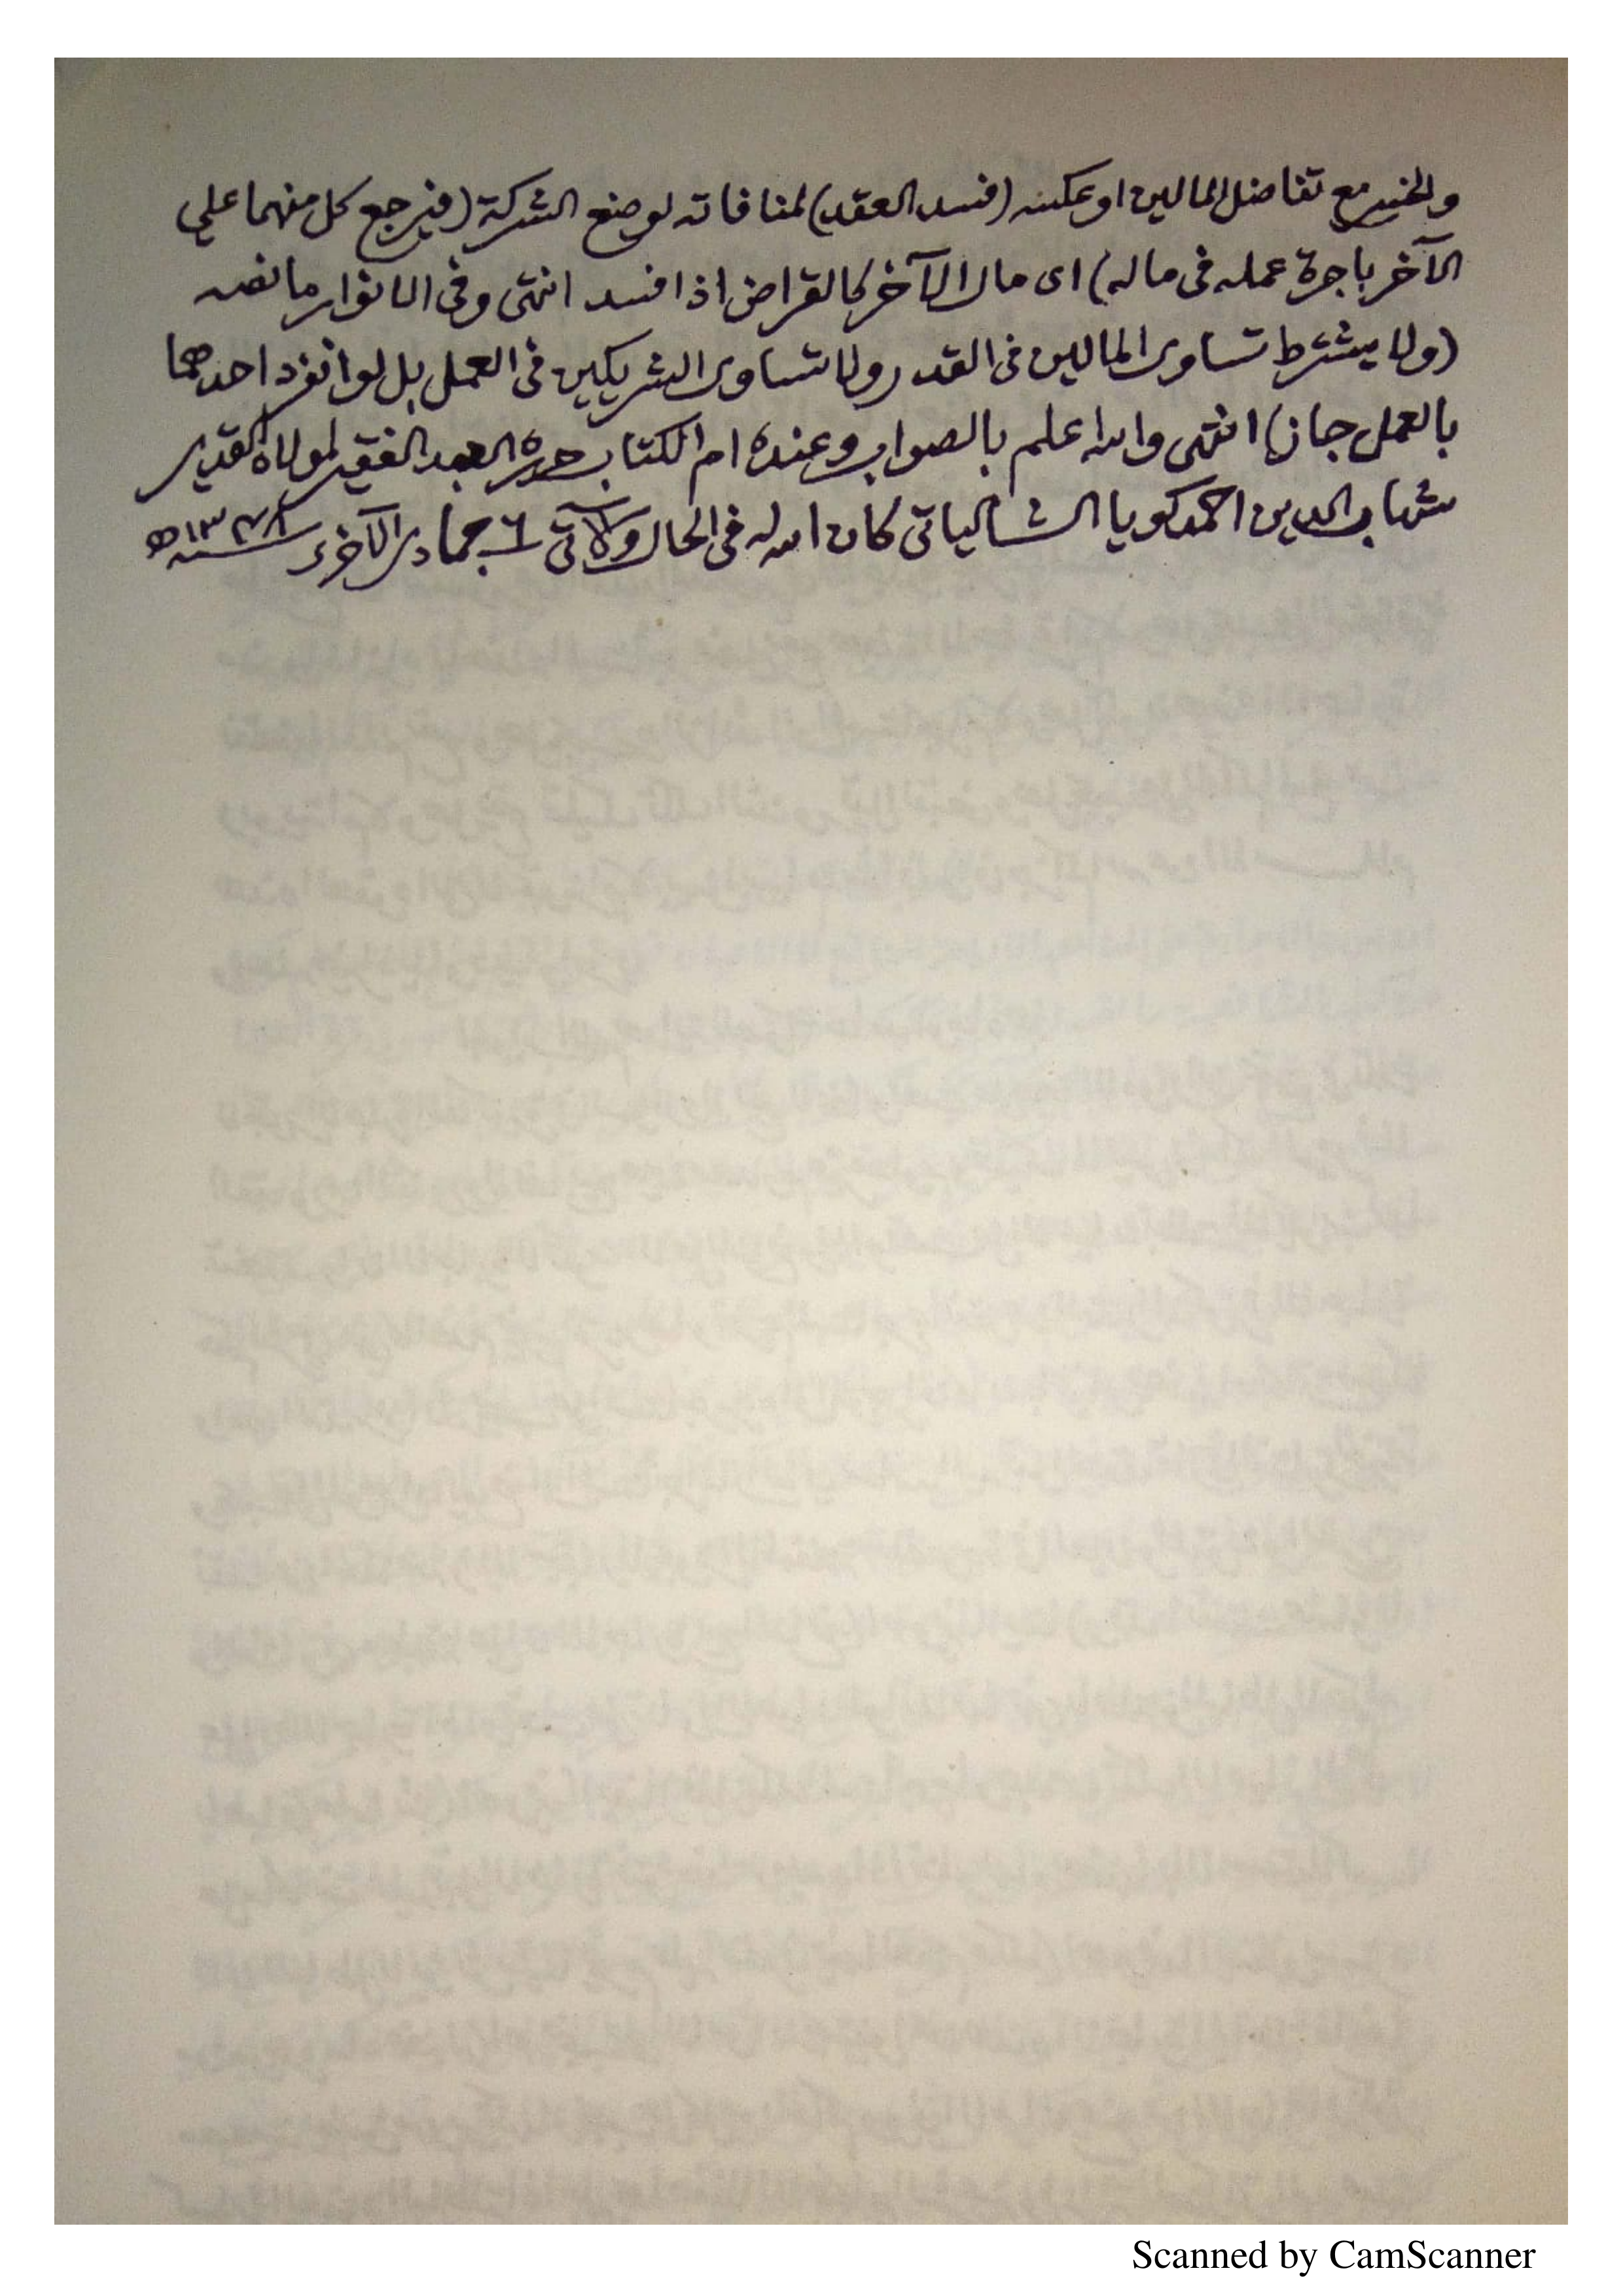 والخسر مع تفاضل المالين او عكسه (فسد العقد) لمنافاته لوضع الشركة (فيرجع كل منهما على
الآخر باجرة عمله فى ماله) اى مال الآخر كالقراض اذا فسد انتهى وفى الانوار ما نصه
(ولا يشترط تساوى المالين فى القدر ولا تساوى الشريكين فى العمل بل لو انفرد احدهما
بالعمل جاز) انتهى والله اعلم بالصواب وعنده ام الكتاب حرره العبد الفقير لمولاه القدير
شهاب الدين احمد كويا الشالياتى كان الله له فى الحال والآتى ٦ جمادى الآخرة سنه
Scanned by CamScanner